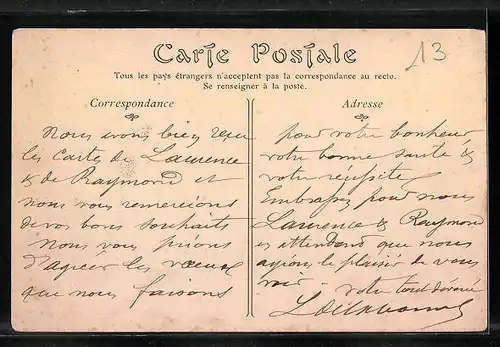 Carte Postale
13
Tous les pays étrangers n'acceptent pas la correspondance au recto.
Se renseigner à la poste.
Correspondance
Nous avons bien reçu
les cartes de Laurence
& de Raymond et
nous vous remercions
de vos bons souhaits
Nous vous prions
d'agréer les vœux
que nous faisons
Adresse
pour votre bonheur,
votre bonne santé &
votre réussite
Embrassez pour nous
Laurence & Raymond
en attendant que nous
ayion le plaisir de vous
voir -
votre tout dévoué